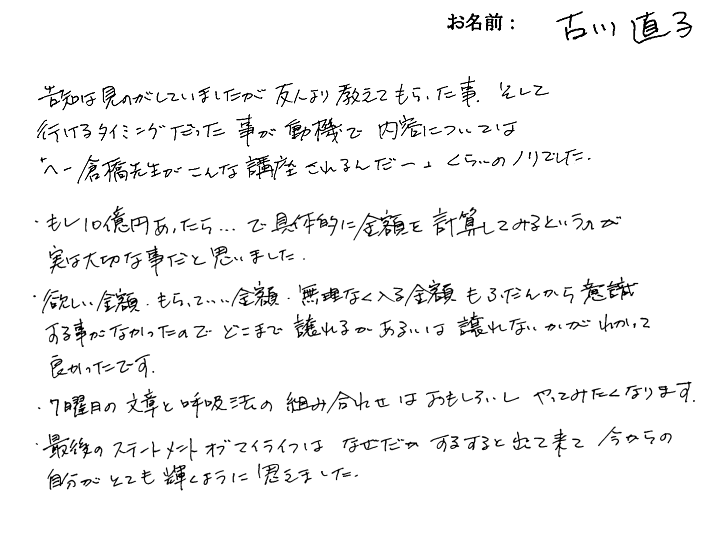 お名前： 古川 直子
告知は見のがしていましたが 友人より 教えてもらった事. そして
行けるタイミングだった 事が 動機で 内容については
「へー倉橋先生が こんな 講座 されるんだー」 くらいのノリでした.
・もし10億円あったら… で 具体的に 金額を 計算してみるというのが
実は大切な事だと思いました.
・欲しい金額. もらっていい金額. 無理なく入る金額 も ふだんから 意識
する事がなかったので どこまで 譲れるか あるいは 譲れないかが わかって
良かったです.
・7曜日の 文章と 呼吸法の 組み合わせ は おもしろいし やってみたくなります.
・最後の ステートメント オブ マイライフは なぜだか するすると 出て来て 今からの
自分が とても 輝くように 思えました.